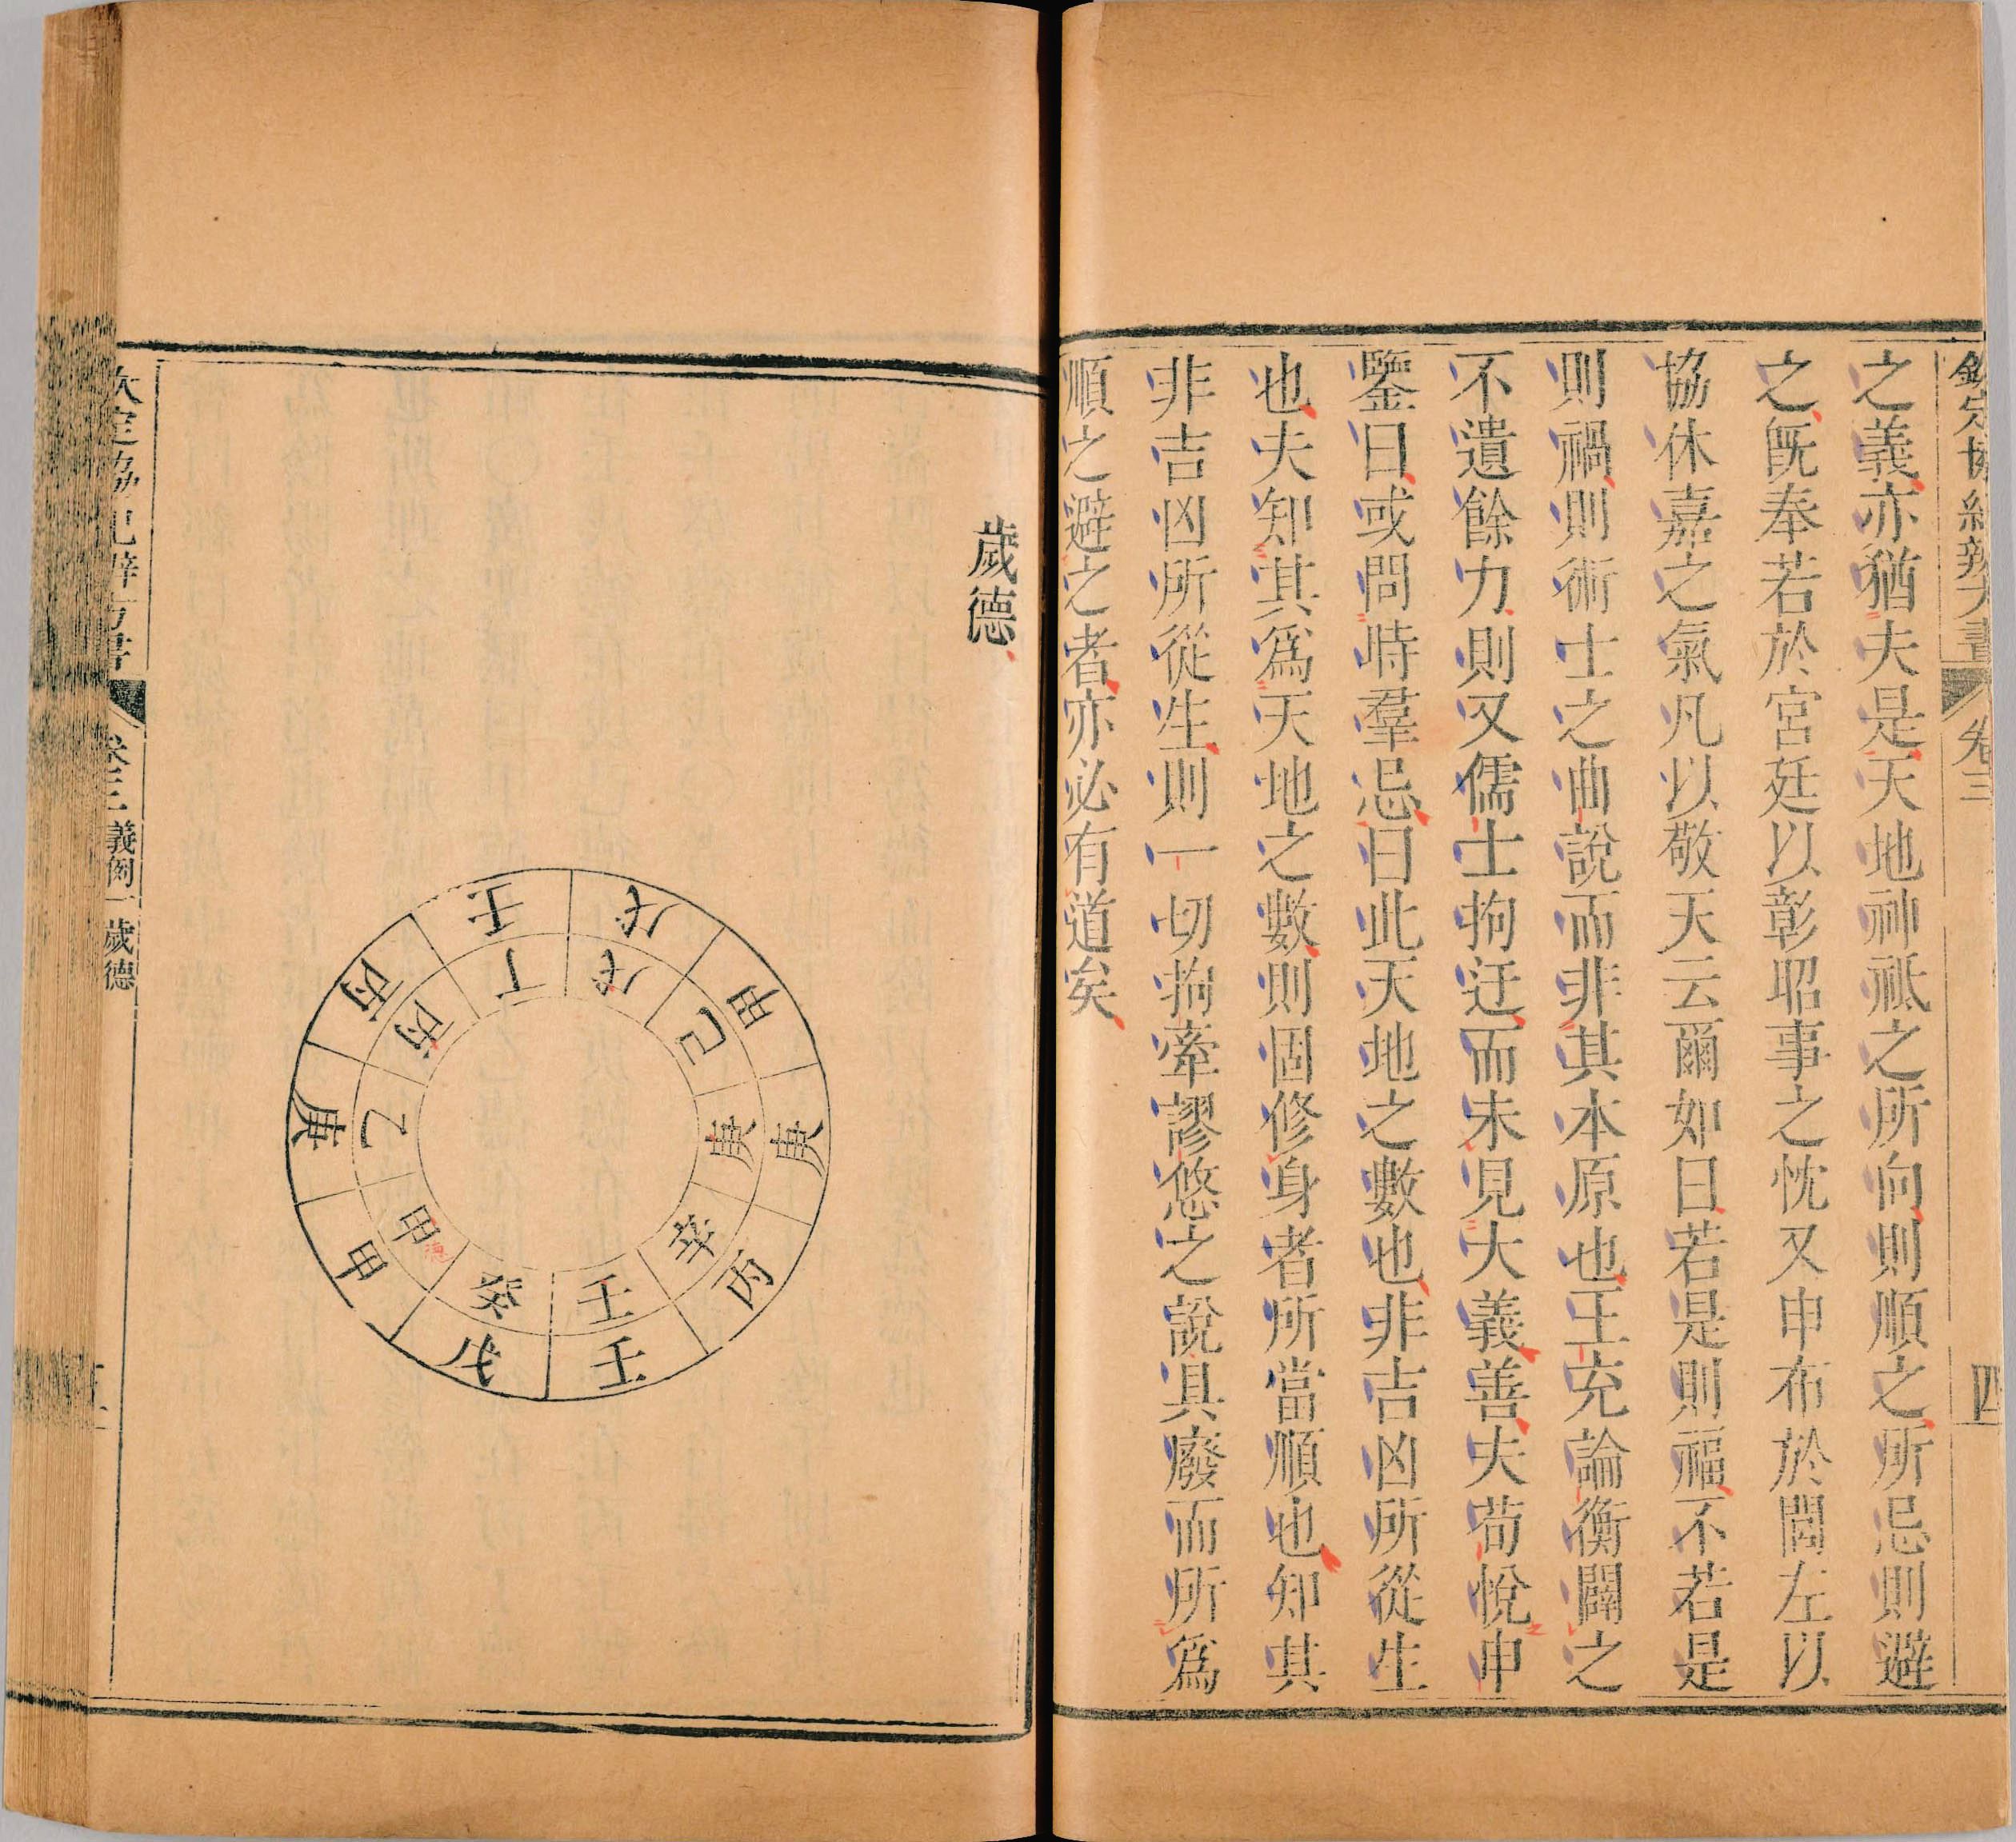 欽定協紀辨方書 卷三 四
之義亦猶夫是天地神祗之所向則順之所忌則避
之旣奉若於宮廷以彰昭事之忱又申布於閭左以
協休嘉之氣凡以敬天云爾如曰若是則福不若是
則禍則術士之曲說而非其本原也王充論衡闢之
不遺餘力則又儒士拘迂而未見大義善夫荀悅申
鑒曰或問時羣忌曰此天地之數也非吉凶所從生
也夫知其爲天地之數則固修身者所當順也知其
非吉凶所從生則一切拘牽謬悠之說具廢而所爲
順之避之者亦必有道矣
歲德
戊 甲 庚 丙 壬 戊 甲 庚 丙 壬
戊 己 庚 辛 壬 癸 甲 乙 丙 丁
德
欽定協紀辨方書 卷三 義例一 歲德